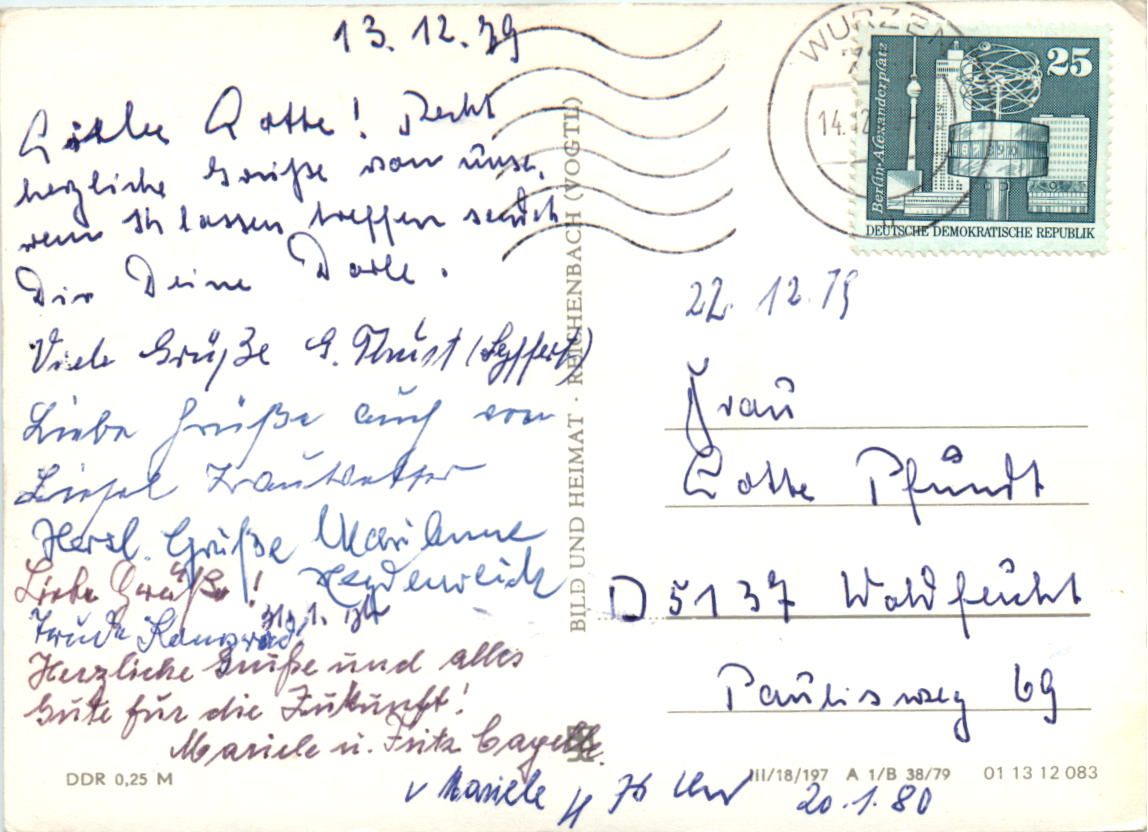 13.12.79
Liebe Lotte! Recht
herzliche Grüße von unse.
lassen treffen sendet
Dir Deine Dorle.
Viele Grüße G. Thust (Seyffert)
Liebe Grüße auch von
Liesel Trautvetter
Herzl. Grüße Marianne
Heydenreich
Liebe Grüße!
Trude
Herzliche Grüße und alles
Gute für die Zukunft!
Mariele u. Fritz
v Mariele
20.1.80
DDR 0,25 M
BILD UND HEIMAT · REICHENBACH (VOGTL)
WURZEN
14.12
Berlin-Alexanderplatz
25
DEUTSCHE DEMOKRATISCHE REPUBLIK
22.12.79
Frau
Lotte Pfundt
D 5137 Waldfeucht
Paulisweg 69
III/18/197 A 1/B 38/79 01 13 12 083